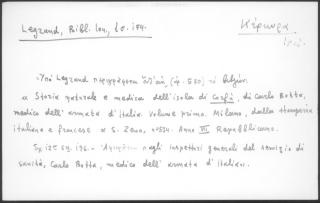 Legrand, Bibl. Ion., 1σ. 194.
Κέρκυρα
Ὑπὸ Legrand περιγράφεται (ἀρ. 580) τὸ βιβλίον.
« Storia naturale e medica dell'isola di Corfù, di Carlo Botta,
medico dell'armata d'Italia. Volume primo. Milano, dalla stamperia
italiana e francese a S. Zeno, Nº 534. Anno VII Repubblicano.
Σχ. 12ον σ. 196. - agli inspettori generali del servizio di
sanità, Carlo Botta, medico dell'armata d'Italia.